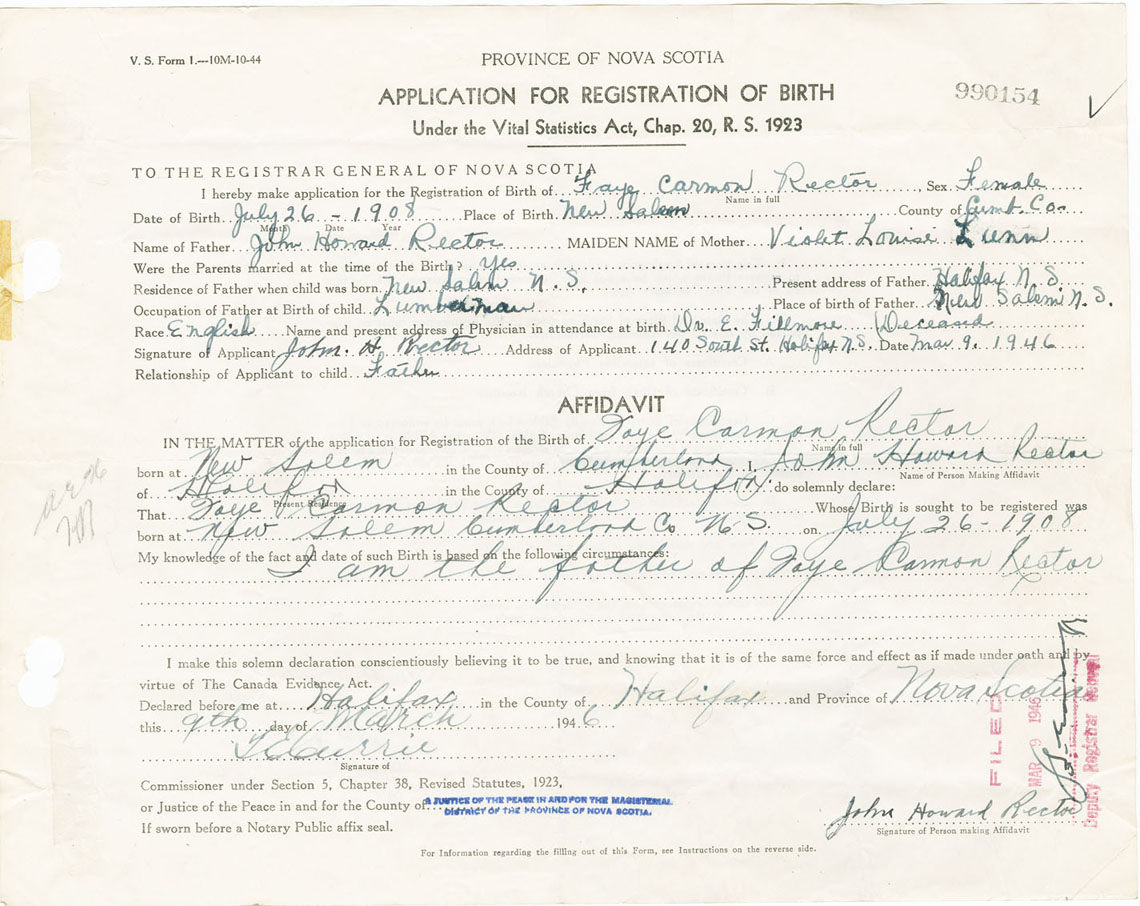 V. S. Form 1.---10M-10-44
PROVINCE OF NOVA SCOTIA
APPLICATION FOR REGISTRATION OF BIRTH
990154
Under the Vital Statistics Act, Chap. 20, R. S. 1923
TO THE REGISTRAR GENERAL OF NOVA SCOTIA
I hereby make application for the Registration of Birth of Faye Carmon Rector, Sex Female
Name in full
Date of Birth July 26 - 1908 Place of Birth New Salem County of Cumb. Co.
Month Date Year
Name of Father John Howard Rector MAIDEN NAME of Mother Violet Louise Lunn
Were the Parents married at the time of the Birth? Yes
Residence of Father when child was born New Salem N. S. Present address of Father Halifax N. S.
Occupation of Father at Birth of child Lumberman Place of birth of Father New Salem N. S.
Race English Name and present address of Physician in attendance at birth Dr. E. Fillmore (Deceasd
Signature of Applicant John. H. Rector Address of Applicant 140 South St. Halifax N.S. Date Mar 9. 1946
Relationship of Applicant to child Father
AFFIDAVIT
IN THE MATTER of the application for Registration of the Birth of Faye Carmon Rector
Name in full
born at New Salem in the County of Cumberland I, John Howard Rector
Name of Person Making Affidavit
of Halifax in the County of Halifax do solemnly declare:
Present Residence
That Faye Carmon Rector Whose Birth is sought to be registered was
born at New Salem Cumberland Co N. S. on July 26 - 1908
My knowledge of the fact and date of such Birth is based on the following circumstances:
I am the father of Faye Carmon Rector
I make this solemn declaration conscientiously believing it to be true, and knowing that it is of the same force and effect as if made under oath and by
virtue of The Canada Evidence Act.
Declared before me at Halifax in the County of Halifax and Province of Nova Scotia
this 9th day of March 1946
Currie
Signature of
Commissioner under Section 5, Chapter 38, Revised Statutes, 1923,
or Justice of the Peace in and for the County of A JUSTICE OF THE PEACE IN AND FOR THE MAGISTERIAL
DISTRICT OF THE PROVINCE OF NOVA SCOTIA.
If sworn before a Notary Public affix seal.
John Howard Rector
Signature of Person making Affidavit
FILED
MAR 9 1946
Deputy Registrar General
For Information regarding the filling out of this Form, see Instructions on the reverse side.